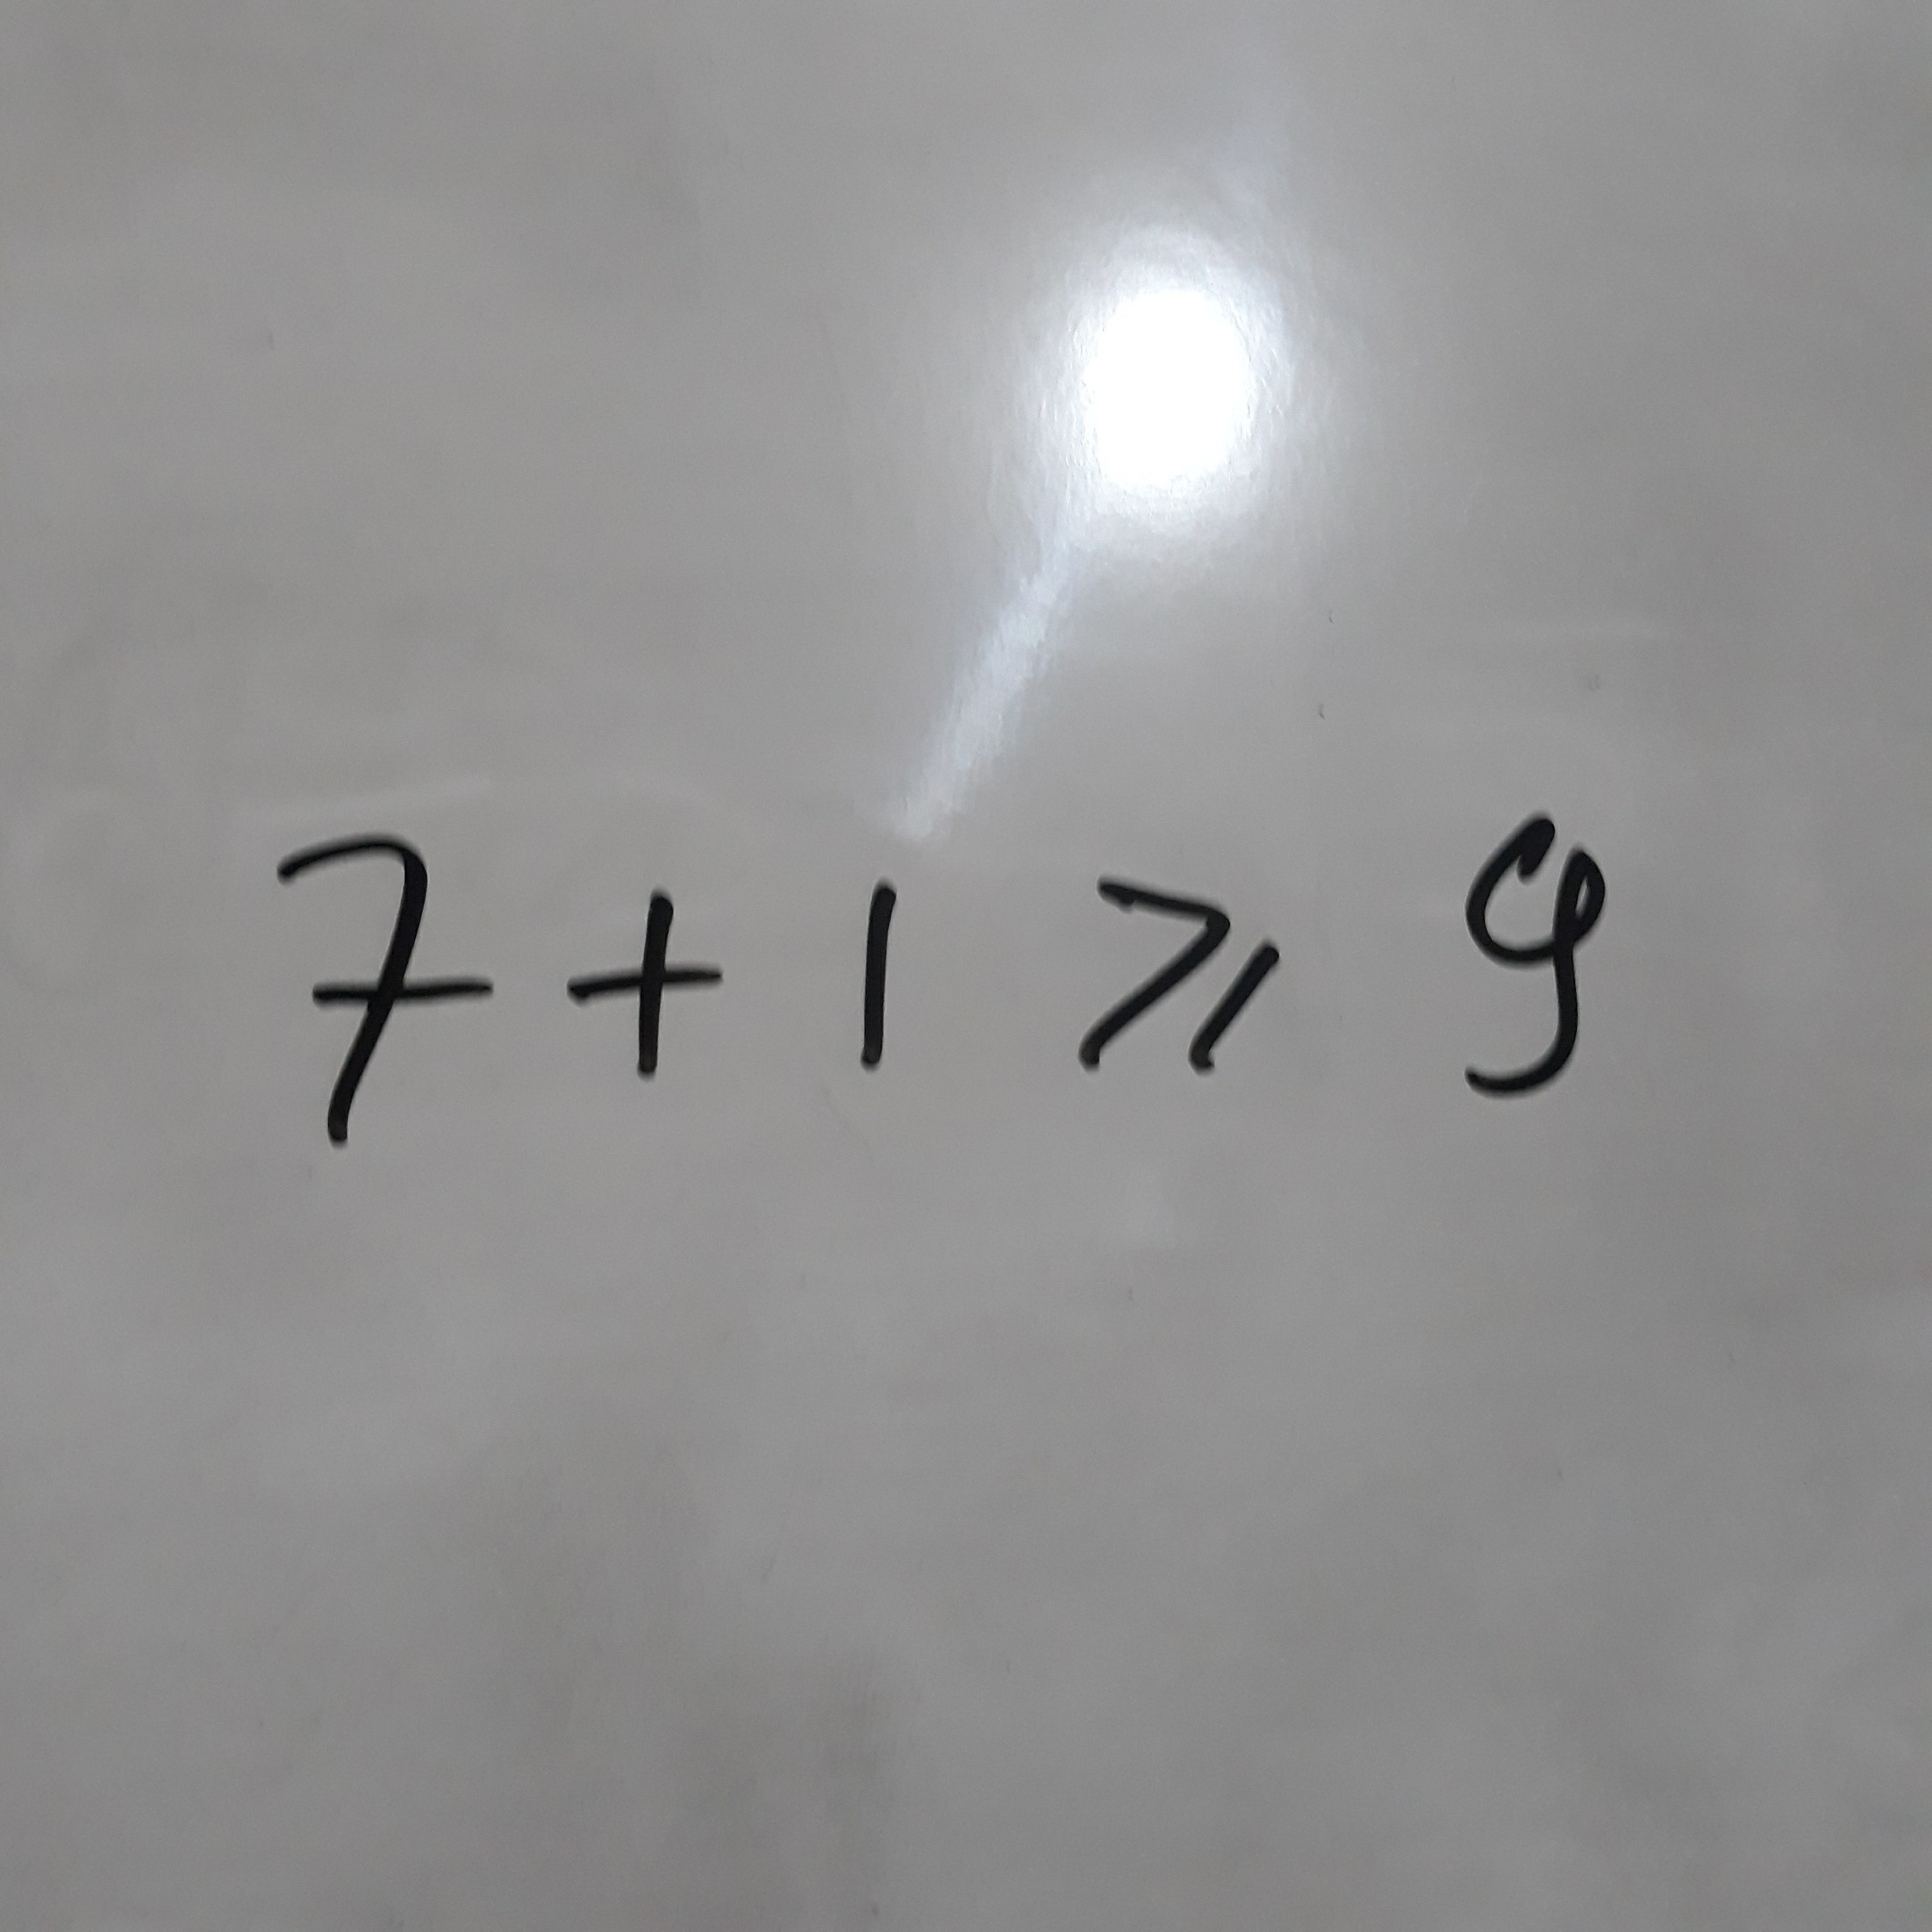 7 + 1 ⩾ 9